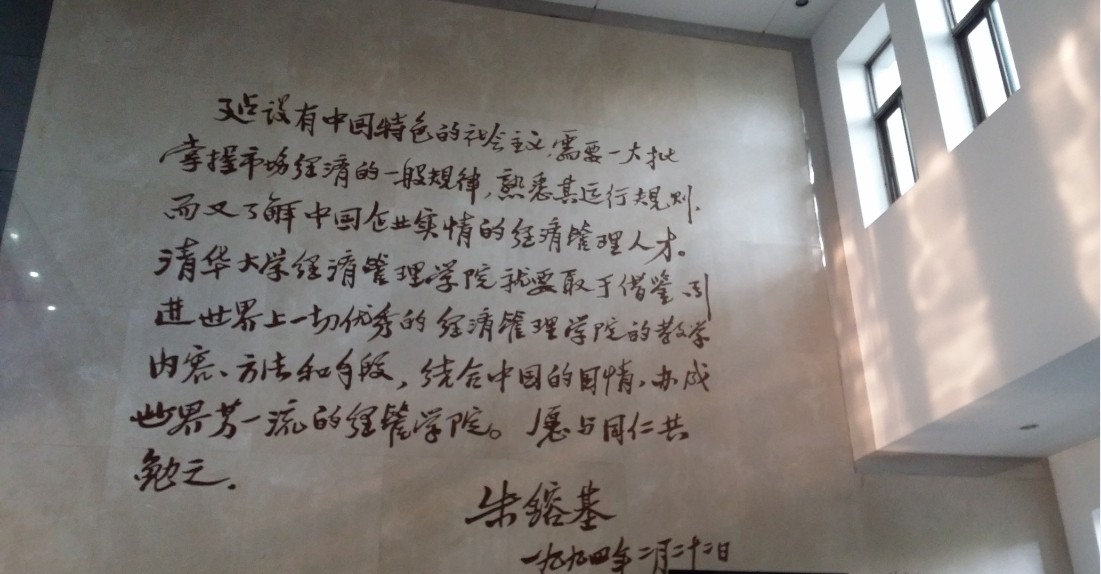 建设有中国特色的社会主义,需要一大批
掌握市场经济的一般规律,熟悉其运行规则,
而又了解中国企业实情的经济管理人才。
清华大学经济管理学院就要敢于借鉴、引
进世界上一切优秀的经济管理学院的教学
内容、方法和手段,结合中国的国情,办成
世界第一流的经管学院。愿与同仁共
勉之.
朱镕基
一九九四年二月二十二日